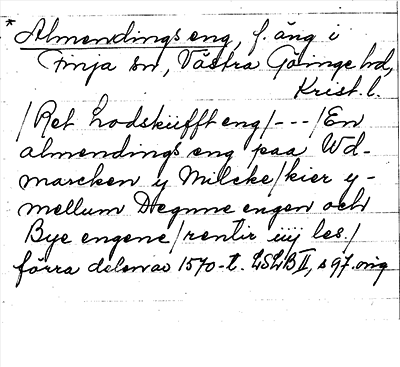 * Almendings eng, f. äng i
Finja sn, Västra Göinge hd,
Krist. l.
/Ret Lodskiifft eng/---/En
almendings eng paa Wd-
marcken y Milcke/kier y-
mellum Degnne engen och
Bye engene/rentir iiij les./
förra delen av 1570-t. LSLB II, s 97. orig